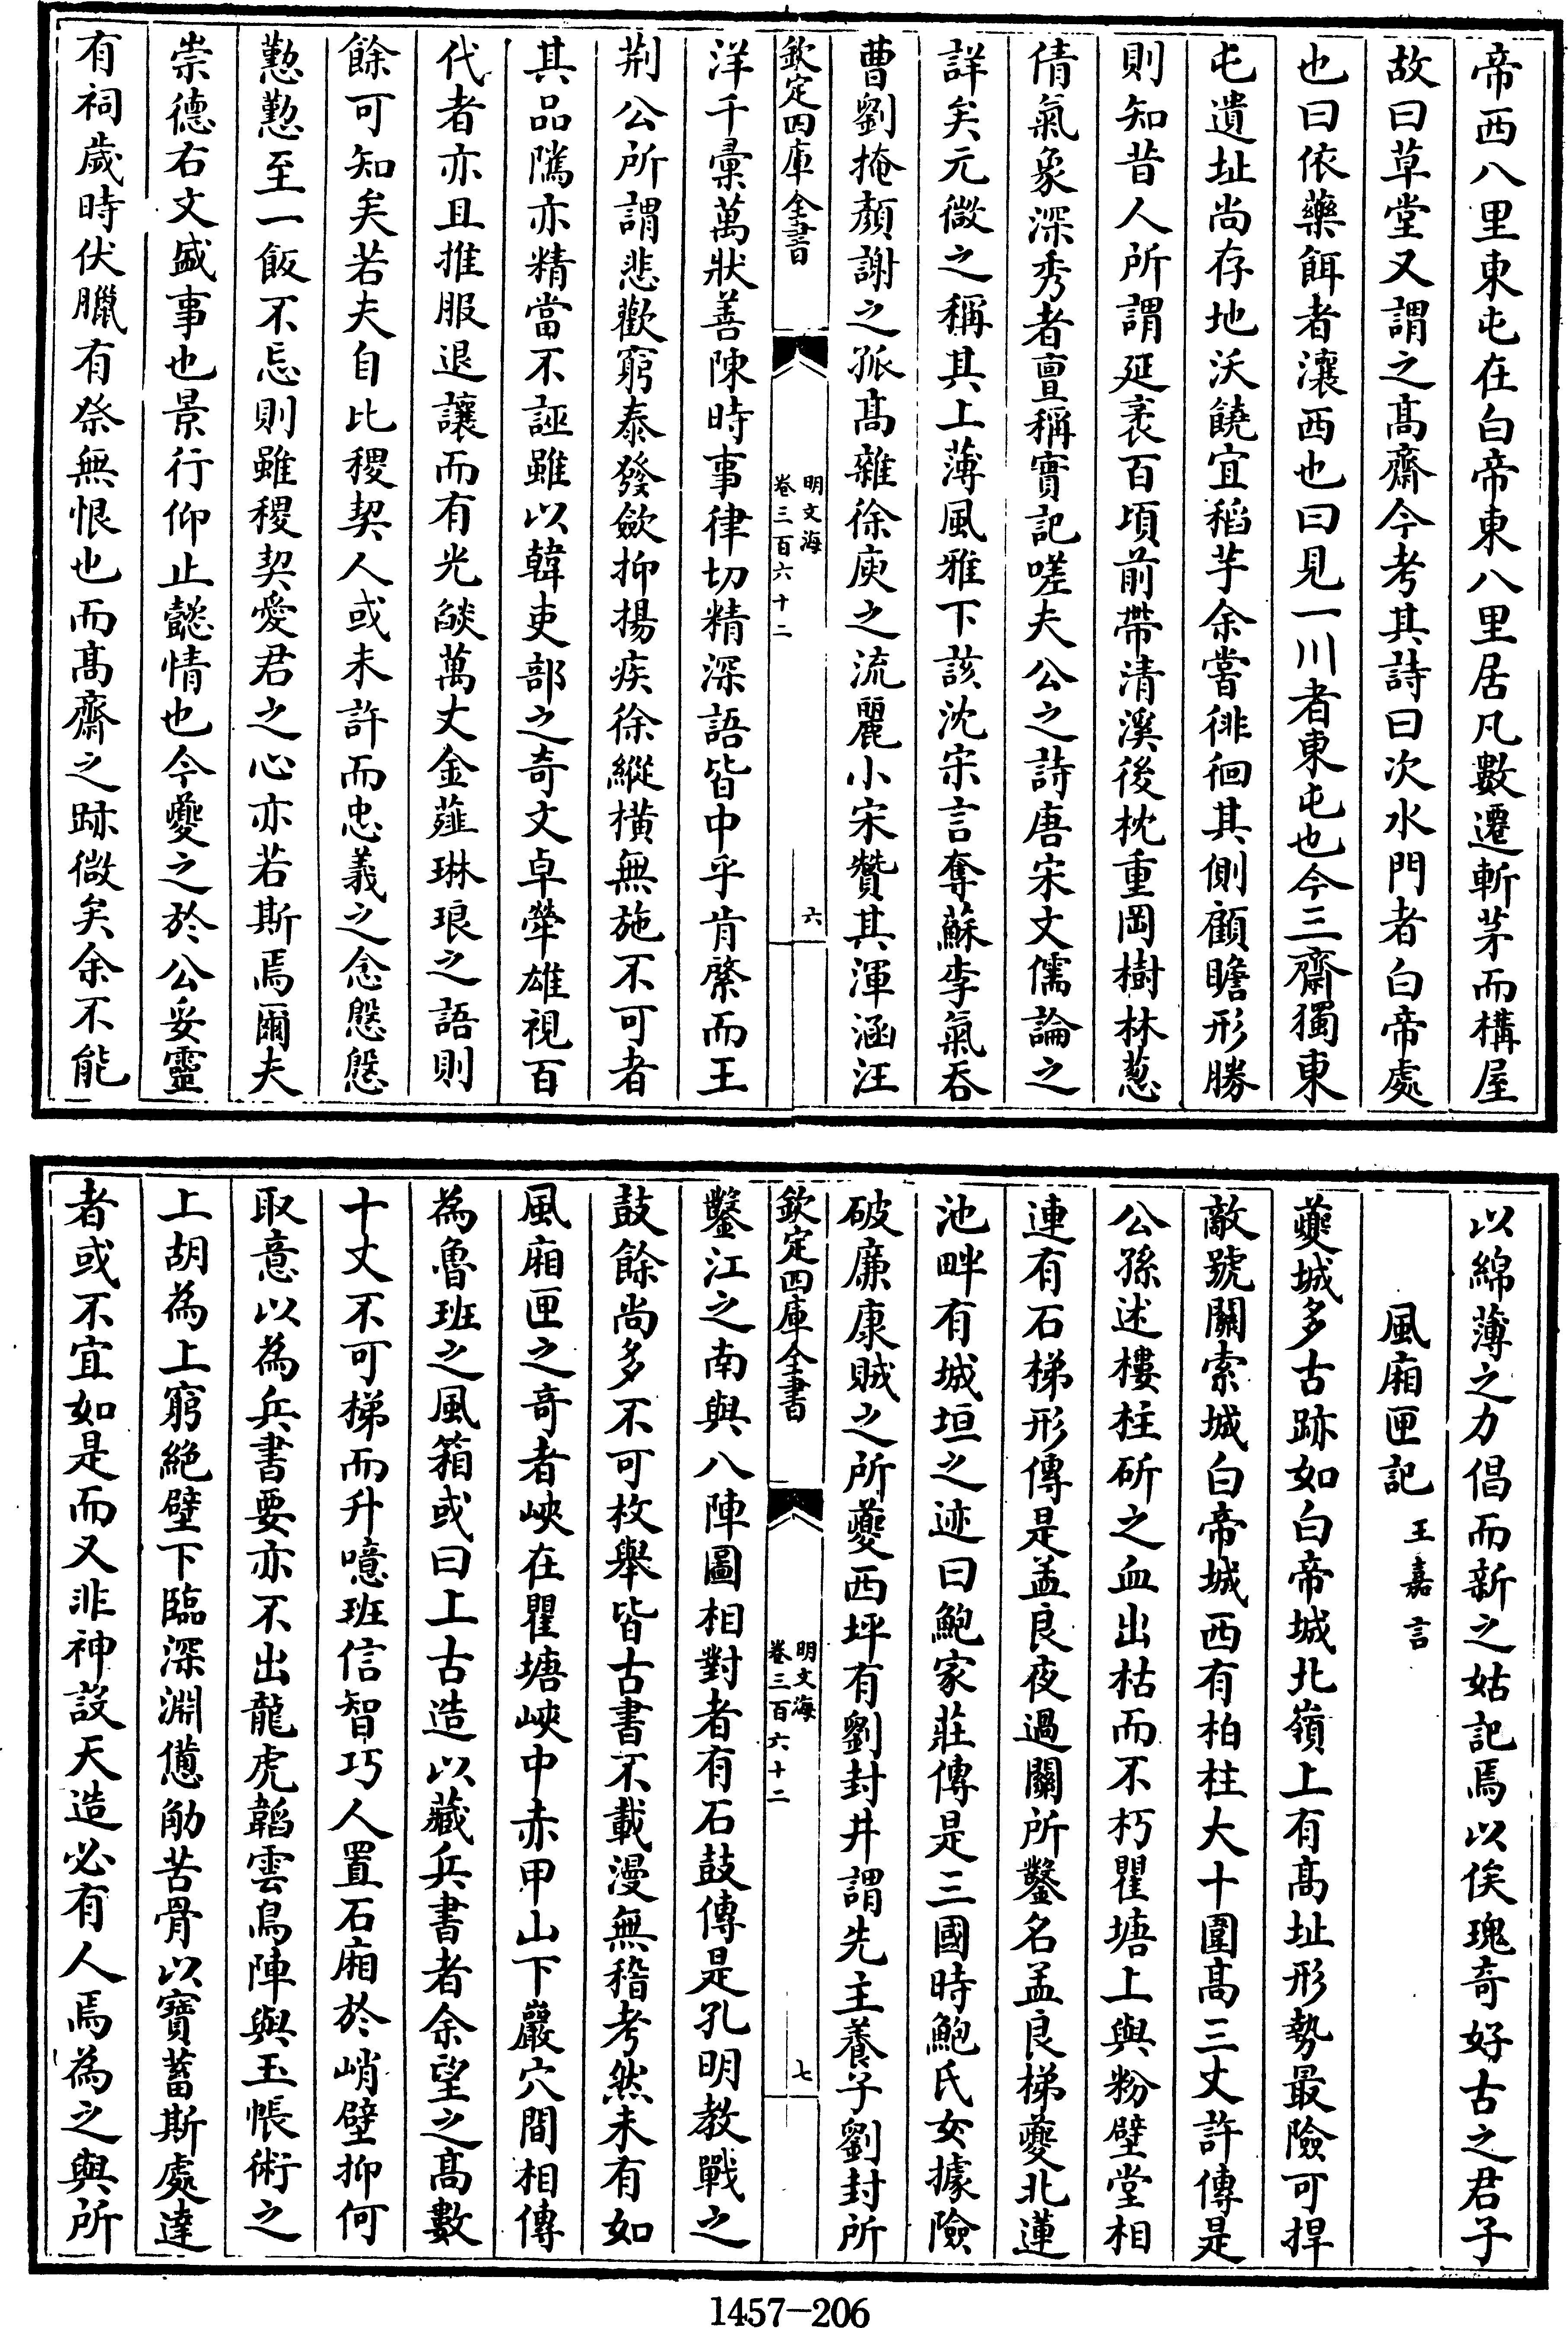 帝西八里東屯在白帝東八里居凡數遷斬茅而構屋
故曰草堂又謂之髙齋今考其詩曰次水門者白帝處
也曰依藥餌者瀼西也曰見一川者東屯也今三齋獨東
屯遺址尚存地沃饒宜稻芋余嘗徘徊其側顧瞻形勝
則知昔人所謂延袤百頃前帶清溪後枕重岡樹林葱
倩氣象深秀者亶稱實記嗟夫公之詩唐宋文儒論之
詳矣元微之稱其上薄風雅下該沈宋言奪蘇李氣吞
曹劉掩顏謝之孤髙雜徐庾之流麗小宋贊其渾涵汪
欽定四庫全書
明文海
卷三百六十二
六
洋千彙萬狀善陳時事律切精深語皆中乎肯綮而王
荆公所謂悲歡窮泰發歛抑揚疾徐縱橫無施不可者
其品隲亦精當不誣雖以韓吏部之奇文卓犖雄視百
代者亦且推服退讓而有光燄萬丈金薤琳琅之語則
餘可知矣若夫自比稷契人或未許而忠義之念慇慇
懃懃至一飯不忘則雖稷契愛君之心亦若斯焉爾夫
崇德右文盛事也景行仰止懿情也今夔之於公妥靈
有祠歲時伏臘有祭無恨也而髙齋之跡微矣余不能
以綿薄之力倡而新之姑記焉以俟瑰奇好古之君子
風廂匣記 王嘉言
夔城多古跡如白帝城北嶺上有髙址形勢最險可捍
敵號關索城白帝城西有柏柱大十圍髙三丈許傳是
公孫述樓柱斫之血出枯而不朽瞿塘上與粉壁堂相
連有石梯形傳是孟良夜過關所鑿名孟良梯夔北蓮
池畔有城垣之迹曰鮑家莊傳是三國時鮑氏女據險
破廉康賊之所夔西坪有劉封井謂先主養子劉封所
欽定四庫全書
明文海
卷三百六十二
七
鑿江之南與八陣圖相對者有石鼓傳是孔明教戰之
鼓餘尚多不可枚舉皆古書不載漫無稽考然未有如
風廂匣之奇者峽在瞿塘峽中赤甲山下巖穴間相傳
為魯班之風箱或曰上古造以藏兵書者余望之髙數
十丈不可梯而升噫班信智巧人置石廂於峭壁抑何
取意以為兵書要亦不出龍虎韜雲鳥陣與玉帳術之
上胡為上窮絶壁下臨深淵憊觔苦骨以寶蓄斯處達
者或不宜如是而又非神設天造必有人焉為之與所
1457-206